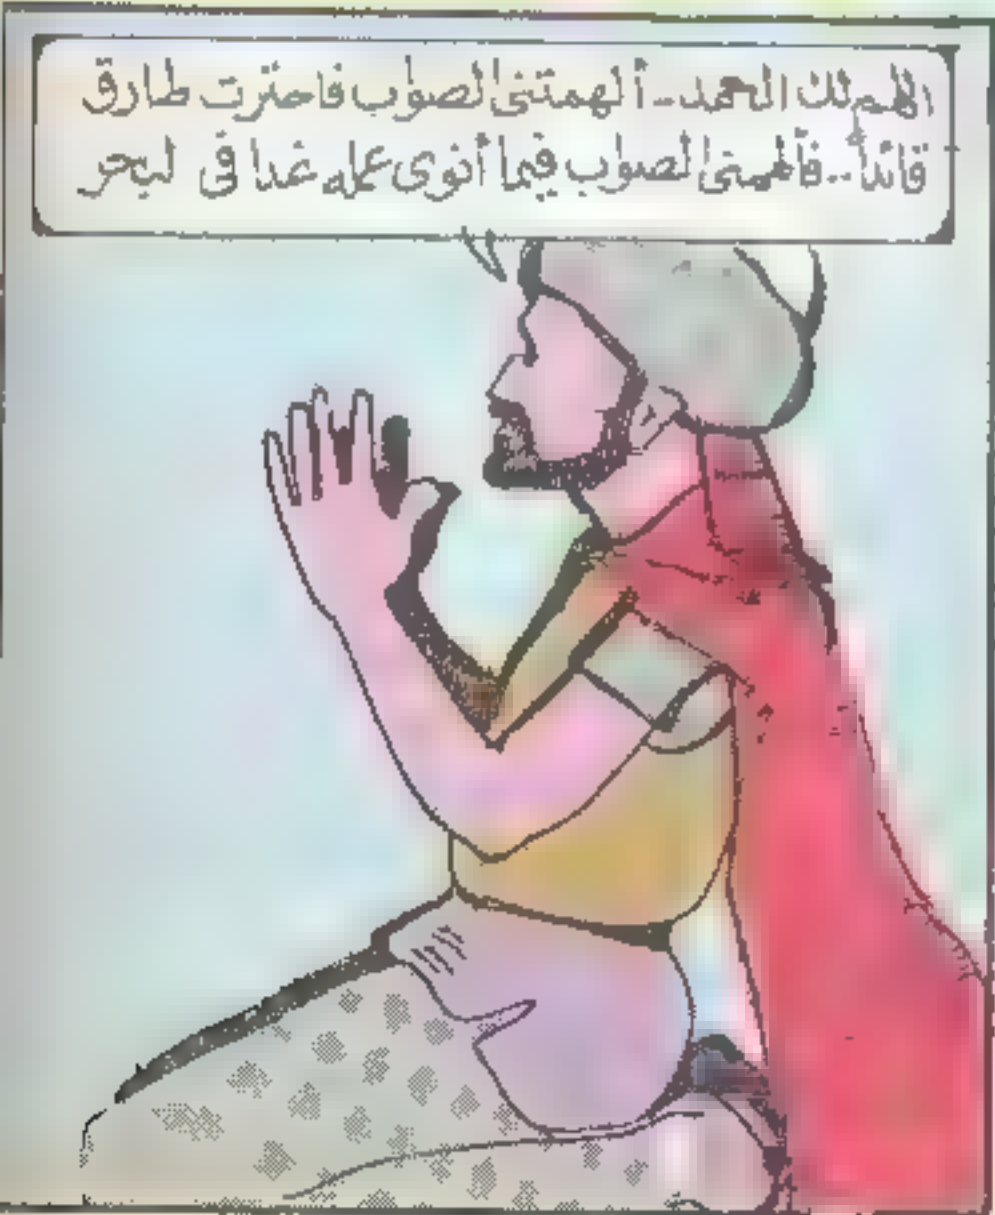 اللهم لك الحمد.. ألهمتنى الصواب فاخترت طارق
قائداً.. فألهمنى الصواب فيما أنوى عمله غدا فى البحر